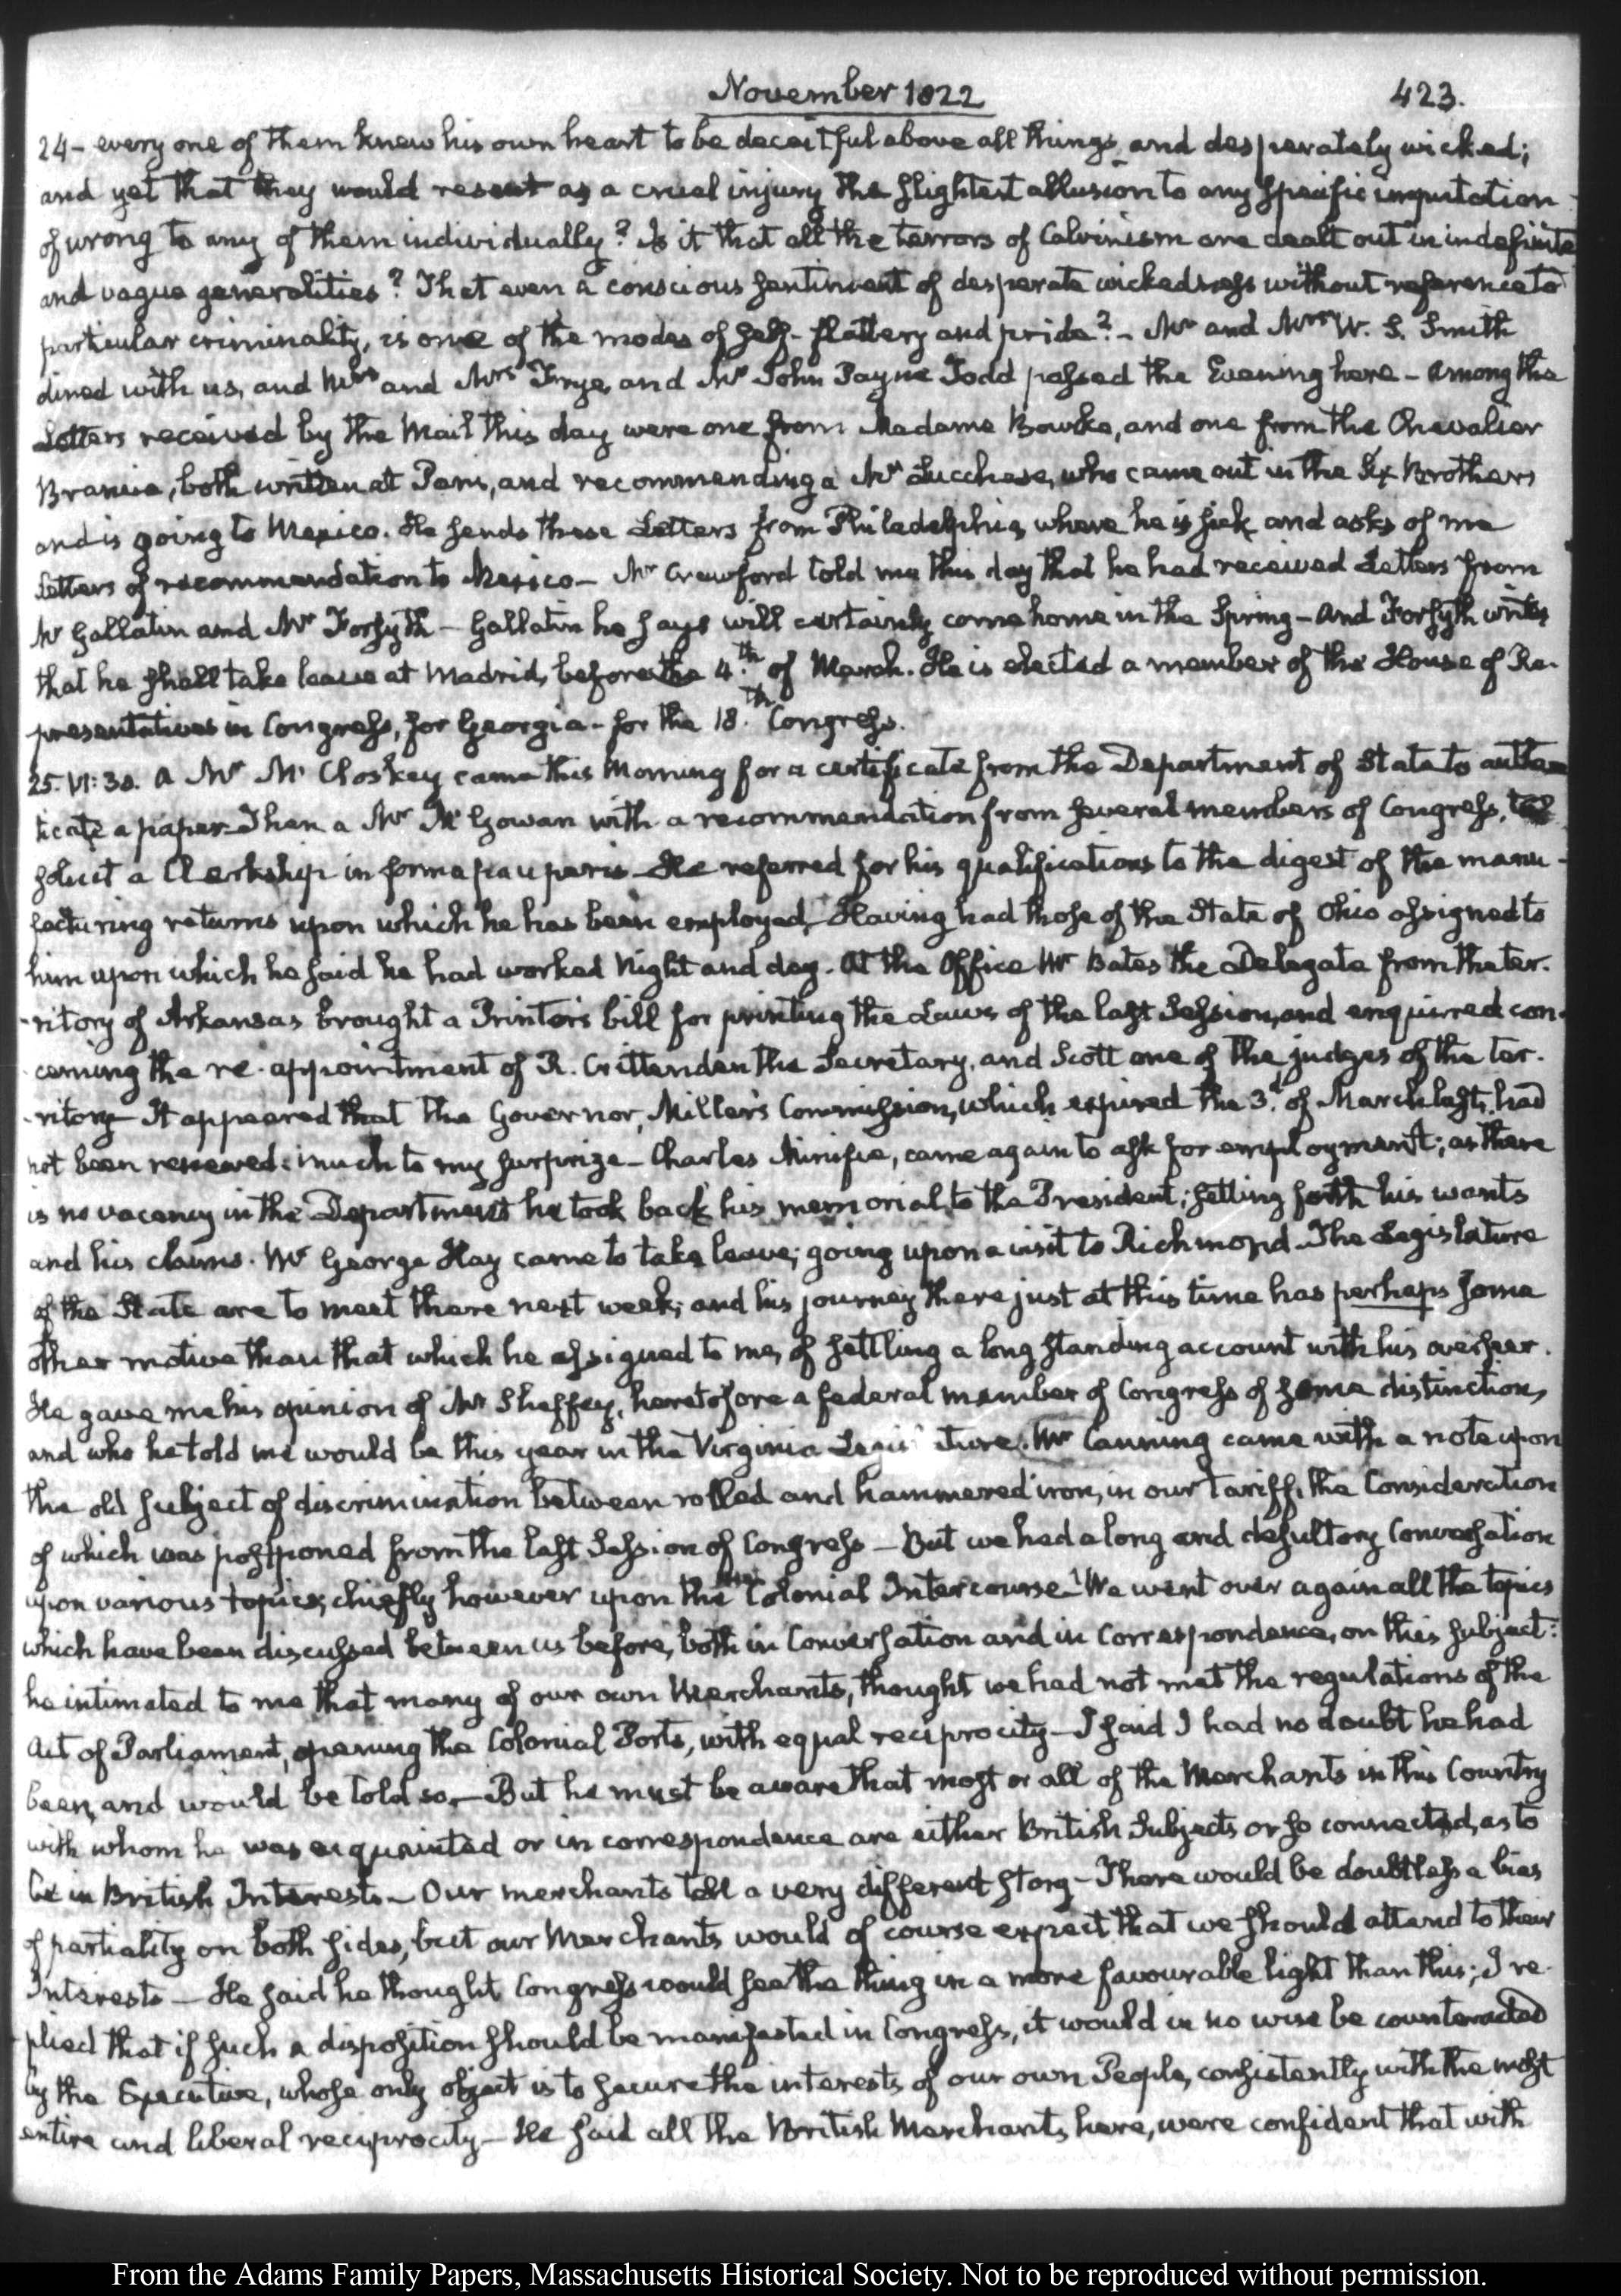 November 1822
423.
24- every one of them knew his own heart to be deceitful above all things, and desperately wicked;
and yet that they would resent as a cruel injury the slightest allusion to any specific imputation
of wrong to any of them individually? Is it that all the terrors of Calvinism are dealt out in indefinite
and vague generalities? That even a conscious sentiment of desperate wickedness without reference to
particular criminality, is one of the modes of self-flattery and pride? - Mr and Mrs W. S. Smith
dined with us, and Mr and Mrs Frye, and Mr John Payne Todd passed the Evening here - Among the
Letters received by the Mail this day were one from Madame Bourke, and one from the Chevalier
both written at Paris, and recommending a Mr Lucchese, who came out in the Six Brothers
and is going to Mexico. He sends these Letters from Philadelphia, where he is sick and asks of me
Letters of recommendation to Mexico - Mr Crawford told me this day that he had received Letters from
Mr Gallatin and Mr Forsyth - Gallatin he says will certainly come home in the Spring - And Forsyth writes
that he shall take leave at Madrid, before the 4.th of March. He is elected a member of the House of Re-
presentatives in Congress, for Georgia - for the 18.th Congress.
25. VI:30. A Mr Mc Closkey came this Morning for a certificate from the Department of State to authen
ticate a paper. Then a Mr Mc Gowan with a recommendation from several members of Congress, to
solicit a Clerkship in forma pauperis - He referred for his qualifications to the digest of the manu-
facturing returns upon which he has been employed, Having had those of the State of Ohio assigned to
him upon which he said he had worked Night and day. At the Office Mr Bates the Delegate from the ter-
-ritory of Arkansas brought a Printer's bill for printing the Laws of the last Session, and enquired con-
-cerning the re-appointment of R. Crittenden the Secretary, and Scott one of the judges of the ter-
-ritory - It appeared that the Governor, Miller's Commission, which expired the 3.d of March last, had
not been renewed: much to my surprize - Charles Minifie, came again to ask for employment; as there
is no vacancy in the Department he took back his memorial to the President; setting forth his wants
and his claims. Mr George Hay came to take leave; going upon a visit to Richmond. The Legislature
of the State are to meet there next week; and his journey there just at this time has perhaps some
other motive than that which he assigned to me, of settling a long standing account with his overseer.
He gave me his opinion of Mr Sheffey, heretofore a federal member of Congress of some distinction,
and who he told me would be this year in the Virginia Legis ture. Mr Canning came with a note upon
the old subject of discrimination between rolled and hammered iron, in our tariff, the Consideration
of which was postponed from the last Session of Congress - But we had a long and desultory Conversation
upon various topics; chiefly however upon the Colonial Intercourse - We went over again all the topics
which have been discussed between us before, both in Conversation and in Correspondence, on this subject:
he intimated to me that many of our own Merchants, thought we had not met the regulations of the
Act of Parliament, opening the Colonial Ports, with equal reciprocity - I said I had no doubt he had
been, and would be told so, - But he must be aware that most or all of the Merchants in this Country
with whom he was acquainted or in correspondence are either British Subjects or so connected, as to
be in British Interests - Our merchants tell a very different story - There would be doubtless a bias
of partiality on both sides, but our Merchants would of course expect that we should attend to their
Interests - He said he thought Congress would see the thing in a more favourable light than this; I re-
plied that if such a disposition should be manifested in Congress, it would in no wise be counteracted
by the Executive, whose only object is to secure the interests of our own People, consistently with the most
entire and liberal reciprocity - He said all the British Merchants here, were confident that with
From the Adams Family Papers, Massachusetts Historical Society. Not to be reproduced without permission.